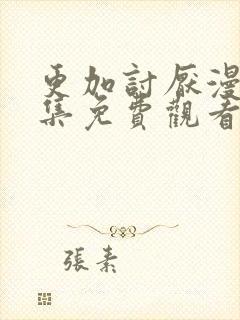 更加討厭漫
集免費觀看
張素